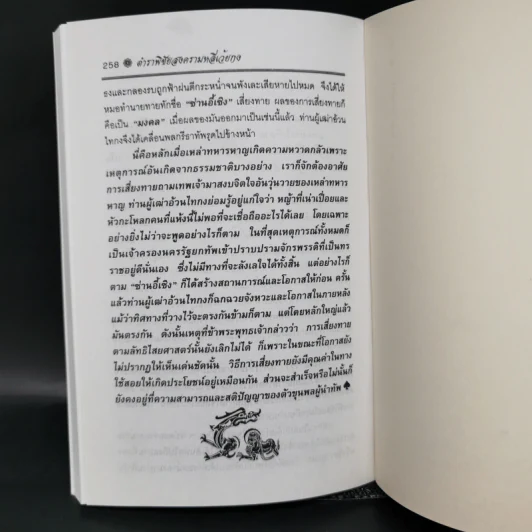 258 ตำราพิชัยสงครามหลี่เว่ยกง
ธงและกลองรบถูกฟ้าฝนตีกระหน่ำจนพังเละเสียหายไปหมด จึงได้ให้
หมอทำนายทายทักชื่อ “ซ่านอี้เซิง” เสี่ยงทาย ผลของการเสี่ยงทายก็
คือเป็น “มงคล” เมื่อผลของมันออกมาเป็นเช่นนี้แล้ว ท่านผู้เฒ่าอ้วน
ไทกงจึงได้เคลื่อนพลกรีธาทัพรุดไปข้างหน้า
นี่คือหลักเมื่อเหล่าทหารหาญเกิดความหวาดกลัวเพราะ
เหตุการณ์อันเกิดจากธรรมชาติบางอย่าง เราก็จักต้องอาศัย
การเสี่ยงทายถามเทพเจ้ามาสงบจิตใจอันวุ่นวายของเหล่าทหาร
หาญ ท่านผู้เฒ่าอ้วนไทกงย่อมรู้อยู่แก่ใจว่า หญ้าที่เน่าเปื่อยและ
หัวกะโหลกคนที่แห้งนี้ไม่พอที่จะเชื่อถืออะไรได้เลย โดยเฉพาะ
อย่างยิ่งไม่ว่าจะพูดอย่างไรก็ตาม ในที่สุดเหตุการณ์ทั้งหมดก็
เป็นเจ้าครองนครรัฐยกทัพเข้าปราบปรามจักรพรรดิที่เป็นทร
ราชอยู่ดีนั่นเอง ซึ่งไม่มีทางที่จะลังเลใจได้ทั้งสิ้น แต่อย่างไรก็
ตาม “ซ่านอี้เซิง” ก็ได้สร้างสถานการณ์และโอกาสให้ก่อน ครั้น
แล้วท่านผู้เฒ่าอ้วนไทกงก็ฉกฉวยจังหวะและโอกาสในภายหลัง
แม้ว่าทิศทางที่วางไว้จะตรงกันข้ามก็ตาม แต่โดยหลักใหญ่แล้ว
มันตรงกัน ดังนั้นเหตุที่ข้าพระพุทธเจ้ากล่าวว่า การเสี่ยงทาย
ตามลัทธิไสยศาสตร์นั้นยังเลิกไม่ได้ ก็เพราะในขณะที่โอกาสยัง
ไม่ปรากฏให้เห็นเด่นชัดนั้น วิธีการเสี่ยงทายยังมีคุณค่าในทาง
ใช้สอยให้เกิดประโยชน์อยู่เหมือนกัน ส่วนจะสำเร็จหรือไม่นั้นก็
ยังคงอยู่ที่ความสามารถและสติปัญญาของตัวขุนพลผู้นำทัพ ♠